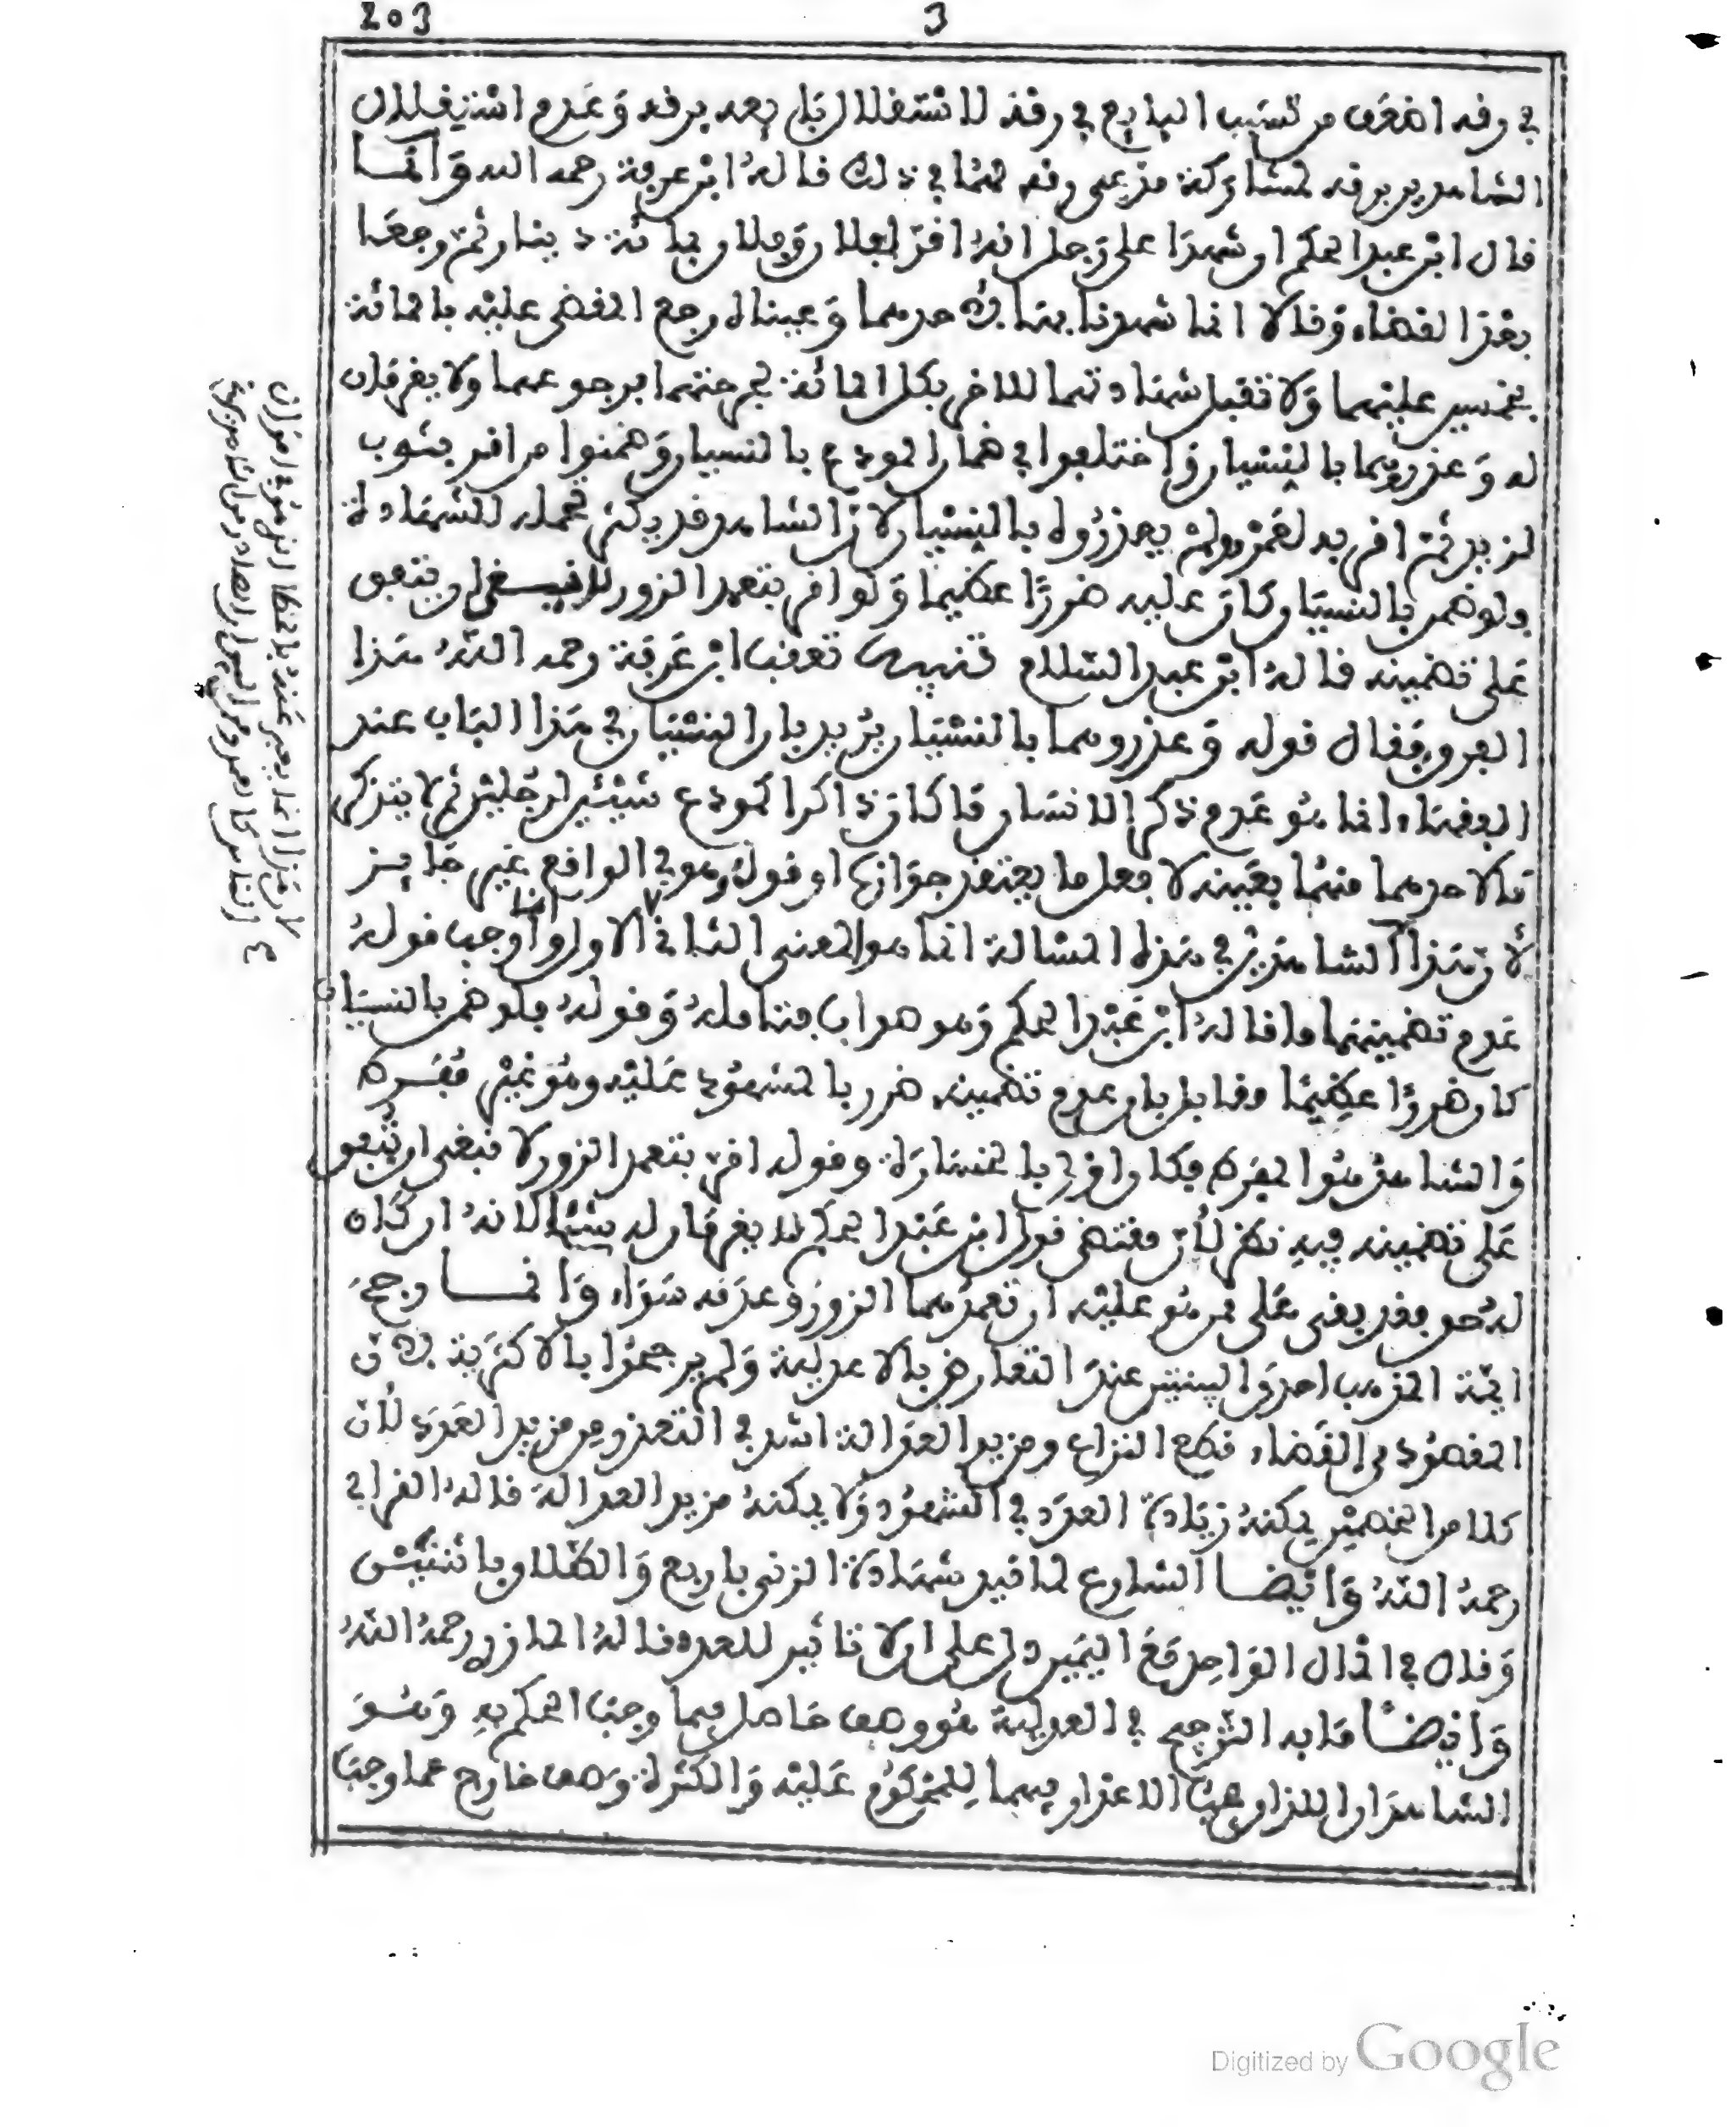 203
3
في رفه اضعف من تسبب البايع في رفه لاستقلال بايعه برفه وعدم استقلال
الشاهدين برفه لمشاركة مدعي رفه لهما في ذلك قاله ابن عرفة رحمه الله وانما
قال ابن عبد الحكم ان شهدا على رجل انه اقر لفلان وفلان بمائة دينار ثم رجعا
بعد القضاء وقالا انما شهدنا بها لاحدهما وعيناه رجع المقضي عليه بالمائة
بخمسين عليهما ولا تقبل شهادتهما للاخر بكل المائة لجرحتهما برجوعهما ولا يغرمان
له وعذروهما بالنسيان واختلفوا في ضمان المودع بالنسيان وضمنوا من اقر بثوب
لزيد ثم اقر به لعمرو ولم يعذروه بالنسيان لان الشاهد قد يكثر تحمله للشهادة
ولو ضمن بالنسيان كان عليه ضررا عظيما ولو اقر بتعمد الزور لانبغى ان يتفق
على تضمينه قاله ابن عبد السلام تنبيه تعقب ابن عرفة رحمه الله هذا
الفرق فقال قوله وعذروهما بالنسيان يريد بان النسيان في هذا الباب عند
الفقهاء انما هو عدم ذكر الانسان ما كان ذاكرا كمودع شيئين لرجلين ثم لا يتذكر
مالاحدهما منهما بعينه لا فعل ما يعتقد جوازه او قوله وهو في الواقع غير جايز
لان هذا الشاهدين في هذه المسالة انما هو المعنى الثاني لا الاول وايضا اوجب قوله
عدم تضمينهما ما قاله ابن عبد الحكم وهو صواب فتامله وقوله فلو ضمن بالنسيان
كان ضررا عظيما مقابل بان عدم تضمينه ضرر بالمشهود عليه وهو غير مفرط
والشاهد هو المفرط فكان احرى بالخسارة وقوله اقر بتعمد الزور لا نبغى ان يتفق
على تضمينه فيه نظر لان مقتضى قول ابن عبد الحكم لا يغرمان له شيئا لانه ان كان
له حق فقد بقي على من هو عليه ان تعمدهما الزور وعدمه سواء وانما رجح
ايمة المذهب احدى البينتين عند التعارض بالاعدلية ولم يرجحوا بالاكثرية لان
المقصود من القضاء قطع النزاع ومزيد العدالة اشد في التعذر من مزيد العدد لان
كلا من الخصمين يمكنه زيادة العدد في الشهود ولا يمكنه مزيد العدالة قاله القرافي
رحمه الله وايضا الشارع لما قيد شهادة الزنى باربع والطلاق باثنين
وقال في المال الواحد مع اليمين دل على ان لا تاثير للعدد قاله المازري رحمه الله
وايضا ما به الترجيح في العدلية هو وصف حاصل فيما وجب الحكم به وهو
الشاهدان اللذان وجب الاعذار فيهما للمحكوم عليه والكثرة وصف خارج عما وجب